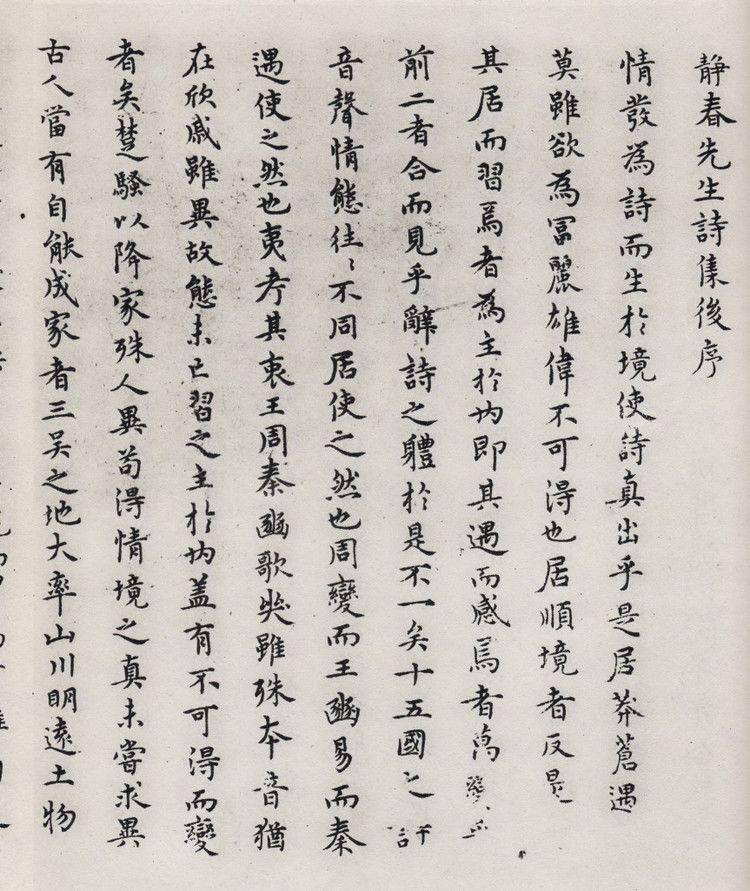 静春先生詩集後序
情發為詩而生於境使詩真出乎是居莽蒼遇
莫雖欲為富麗雄偉不可得也居順境者反是
其居而習焉者為主於内即其遇而感焉者萬變
前二者合而見乎辭詩之軆於是不一矣十五國之
音聲情態往〻不同居使之然也周變而王豳易而秦
遇使之然也夷考其衷王周秦豳歌哭雖殊本音猶
在欣戚雖異故態未已習之主於内盖有不可得而變
者矣楚騷以降家殊人異苟得情境之真未嘗求異
古人當有自能成家者三吴之地大率山川明遠土物